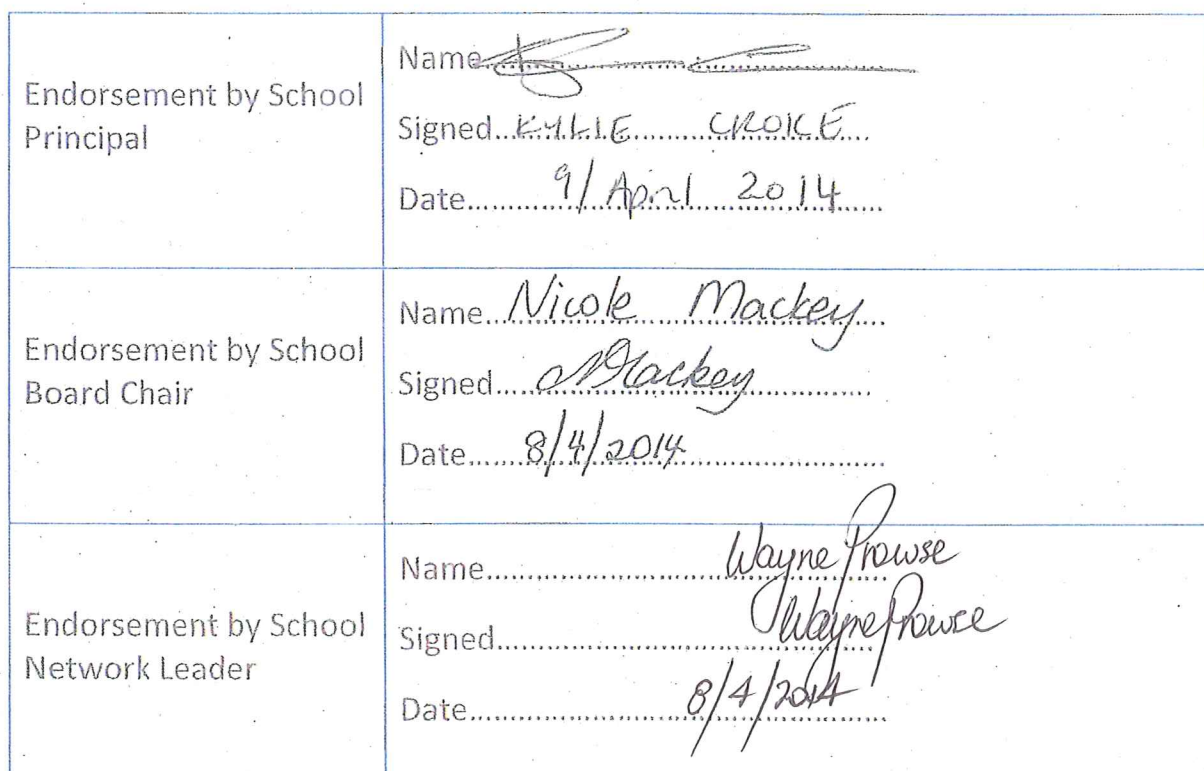 Endorsement by School
Principal
Name
Signed KYLIE CROKE
Date 9/ April 2014
Endorsement by School
Board Chair
Name Nicole Mackey
Signed NMackey
Date 8/4/2014
Endorsement by School
Network Leader
Name Wayne Prowse
Signed Wayne Prowse
Date 8/4/2014